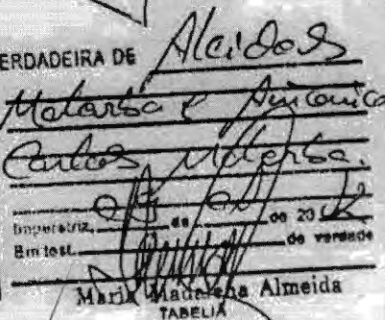 ERDADEIRA DE Alcidos
Malarba e Antonio
Carlos Malarba.
Imperatriz, de de 20
Em test. de verdade
Maria Madalena Almeida
TABELIÃ